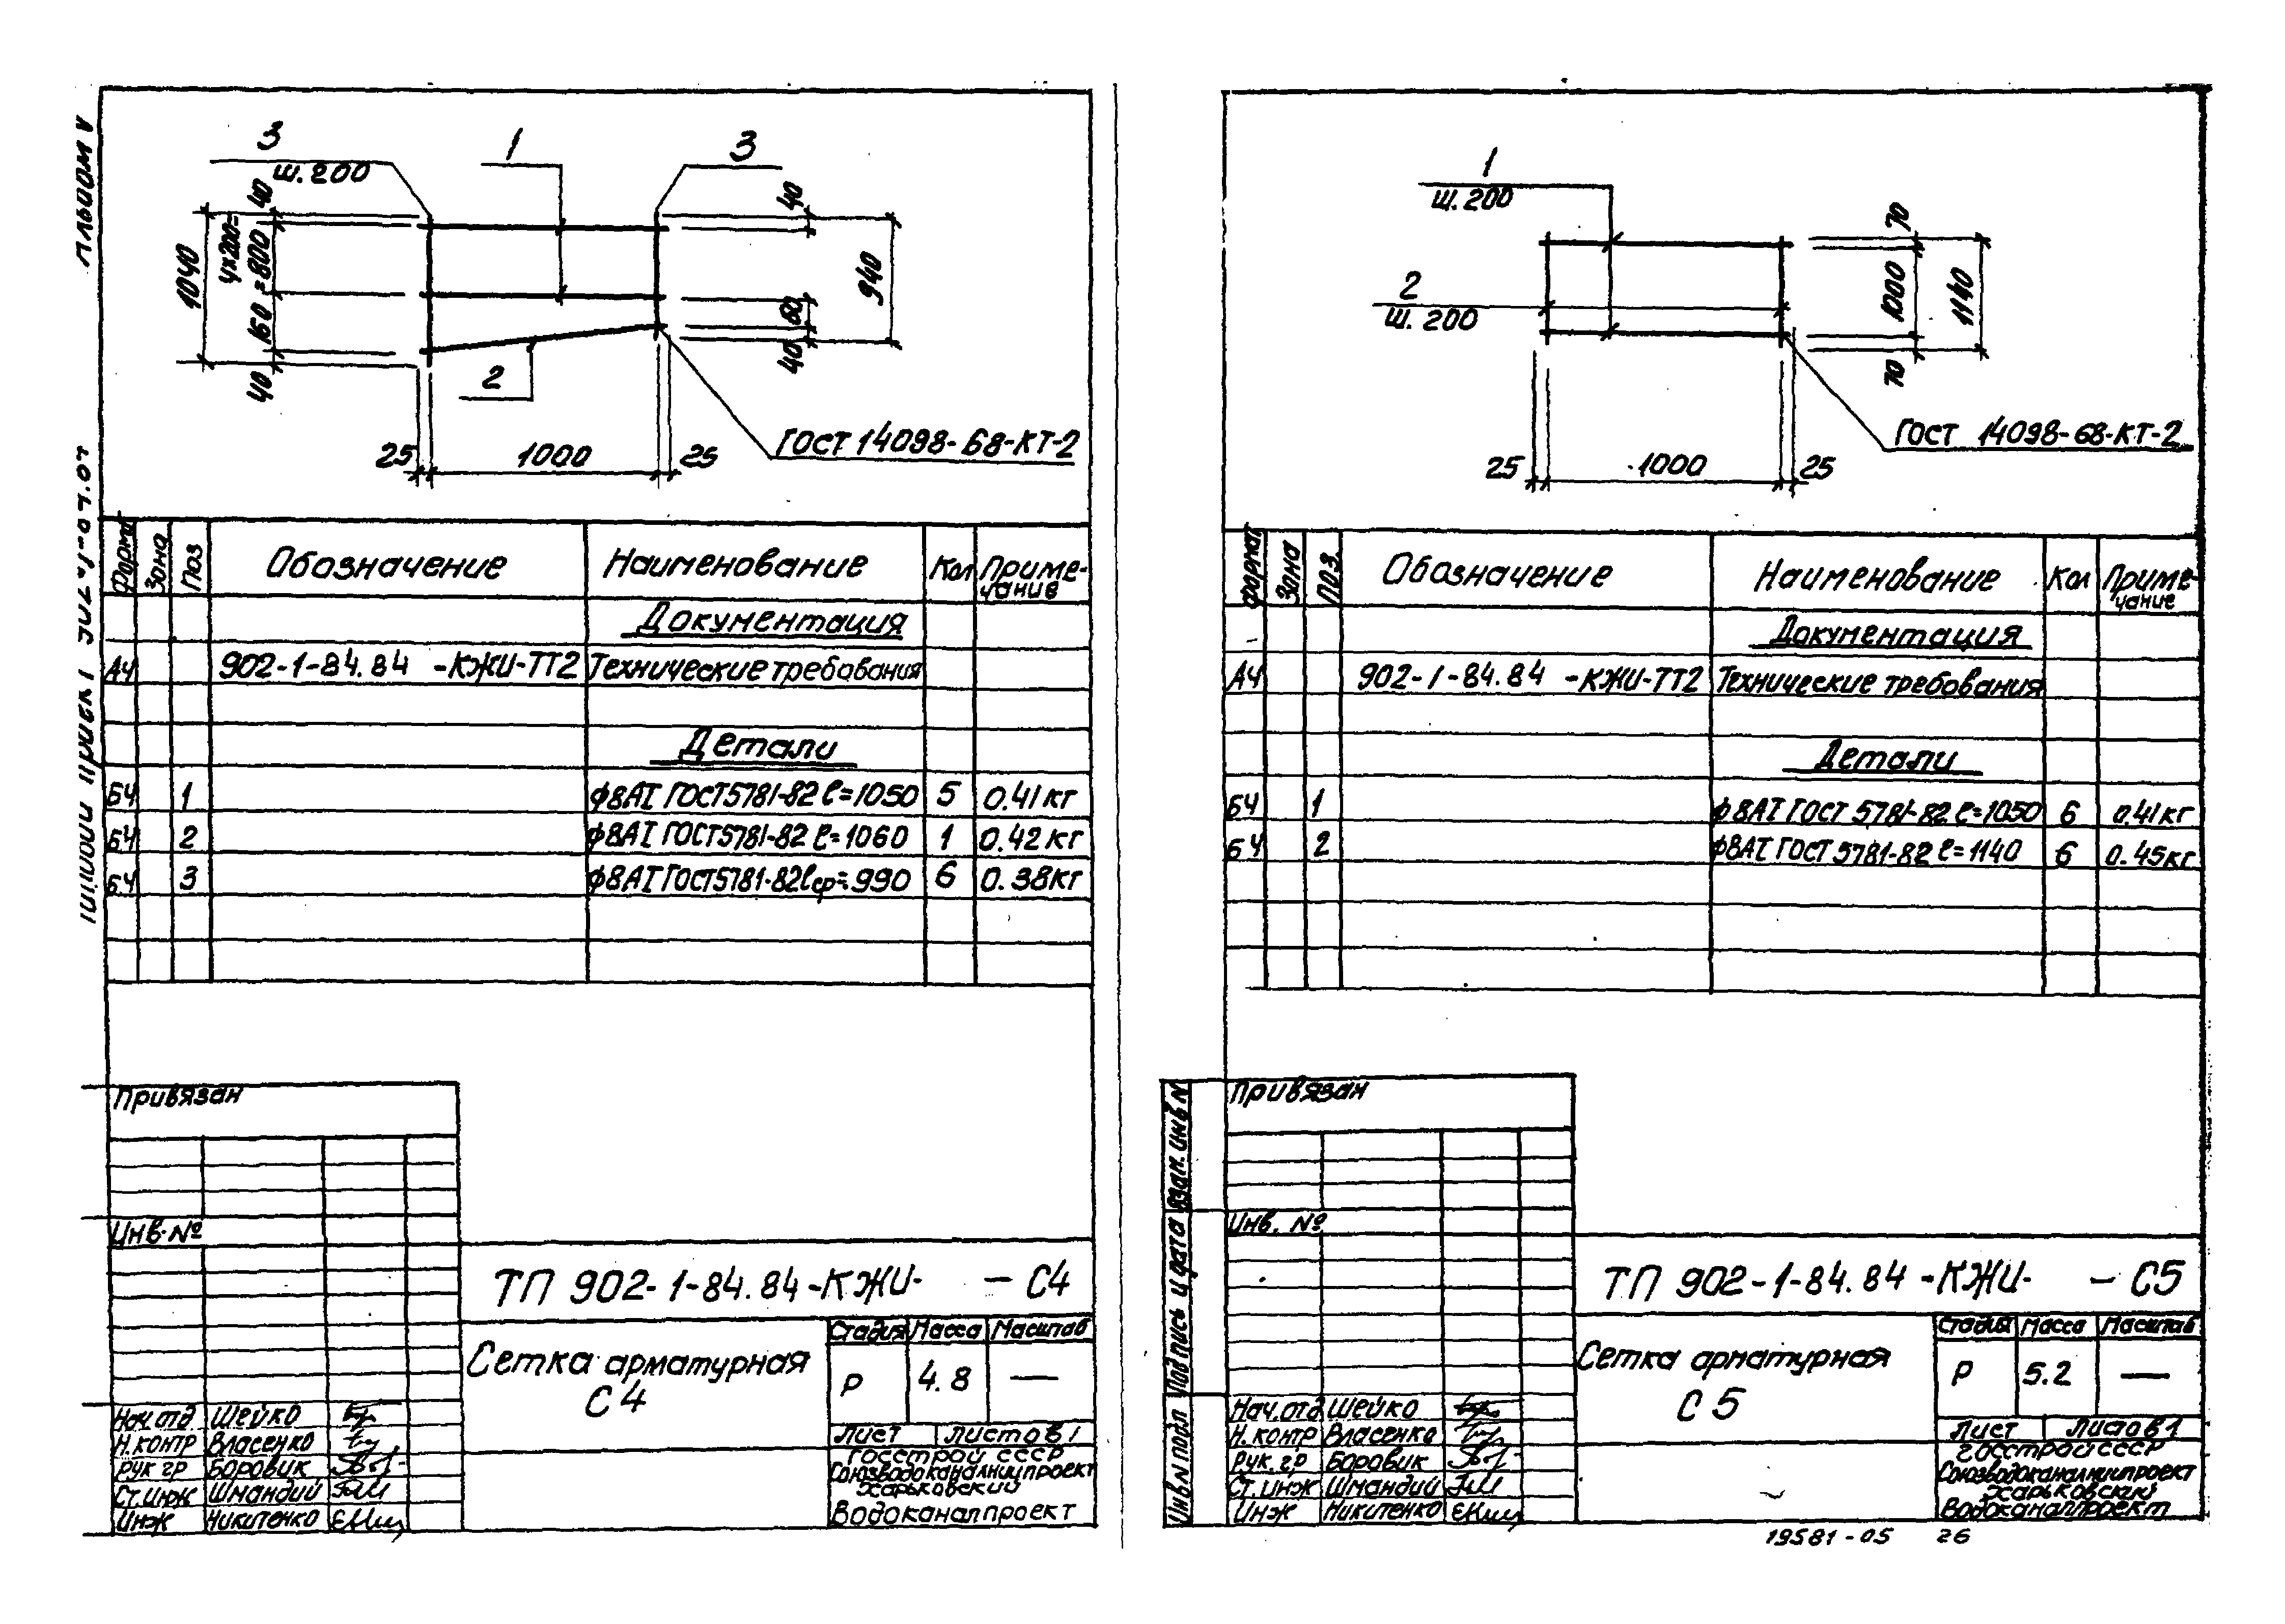 Альбом V
Типовой проект 902-1-
3
ш. 200
1
3
40
4×200=
=800
1040
160
40
40
60
40
940
2
25
1000
25
ГОСТ 14098-68-КТ-2
Формат
Зона
Поз
Обозначение
Наименование
Кол
Приме-
чание
Документация
А4
902-1-84.84 -КЖИ-ТТ2
Технические требования
Детали
БЧ
1
ф8АI ГОСТ5781-82 ℓ=1050
5
0.41кг
БЧ
2
ф8АI ГОСТ5781-82 ℓ=1060
1
0.42 кг
БЧ
3
ф8АI ГОСТ5781-82 ℓср=990
6
0.38кг
Привязан
Инв.№
ТП 902-1-84.84-КЖИ- – С4
Сетка арматурная
С 4
Стадия
Масса
Масштаб
Р
4.8
—
Лист
Листов 1
Госстрой СССР
Союзводоканалниипроект
Харьковский
Водоканалпроект
Нач.отд. Шейко
Н.контр Власенко
Рук гр Боровик
Ст.инж Шмандий
Инж Никитенко
1
ш. 200
2
ш. 200
70
1000
1140
70
25
1000
25
ГОСТ 14098-68-КТ-2
Формат
Зона
Поз.
Обозначение
Наименование
Кол
Приме-
чание
Документация
А4
902-1-84.84 -КЖИ-ТТ2
Технические требования
Детали
БЧ
1
ф8АI ГОСТ 5781-82 ℓ=1050
6
0.41кг
БЧ
2
ф8АI ГОСТ 5781-82 ℓ=1140
6
0.45кг
Привязан
Инв. №
Взам. инв N
Подпись и дата
Инв N подл
ТП 902-1-84.84 -КЖИ- – С5
Сетка арматурная
С 5
Стадия
Масса
Масштаб
Р
5.2
—
Лист
Листов 1
Госстрой СССР
Союзводоканалниипроект
Харьковский
Водоканалпроект
Нач.отд Шейко
Н.контр Власенко
Рук. гр Боровик
Ст.инж Шмандий
Инж Никитенко
19581-05 26